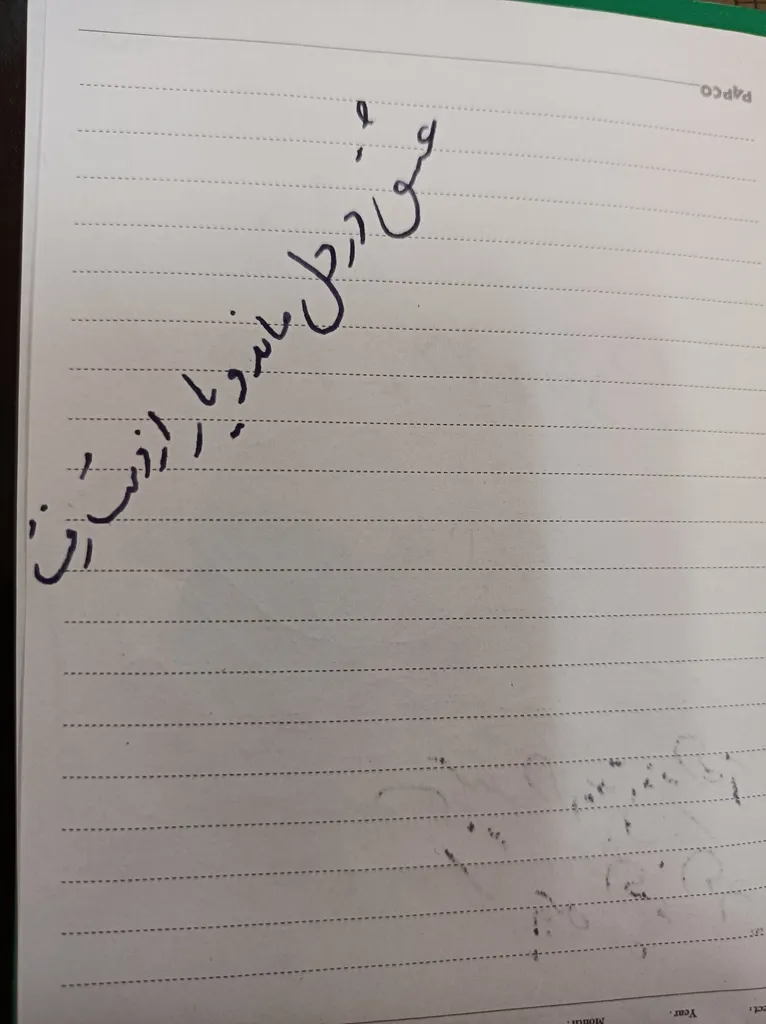 عشق در دل ماند و یار از دست رفت
PAPCO
Year.
Month: